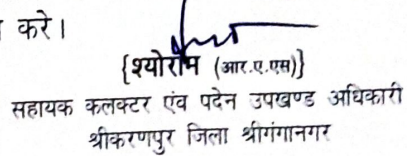 करे।
{श्योराम (आर.ए.एस)}
सहायक कलक्टर एंव पदेन उपखण्ड अधिकारी
श्रीकरणपुर जिला श्रीगंगानगर